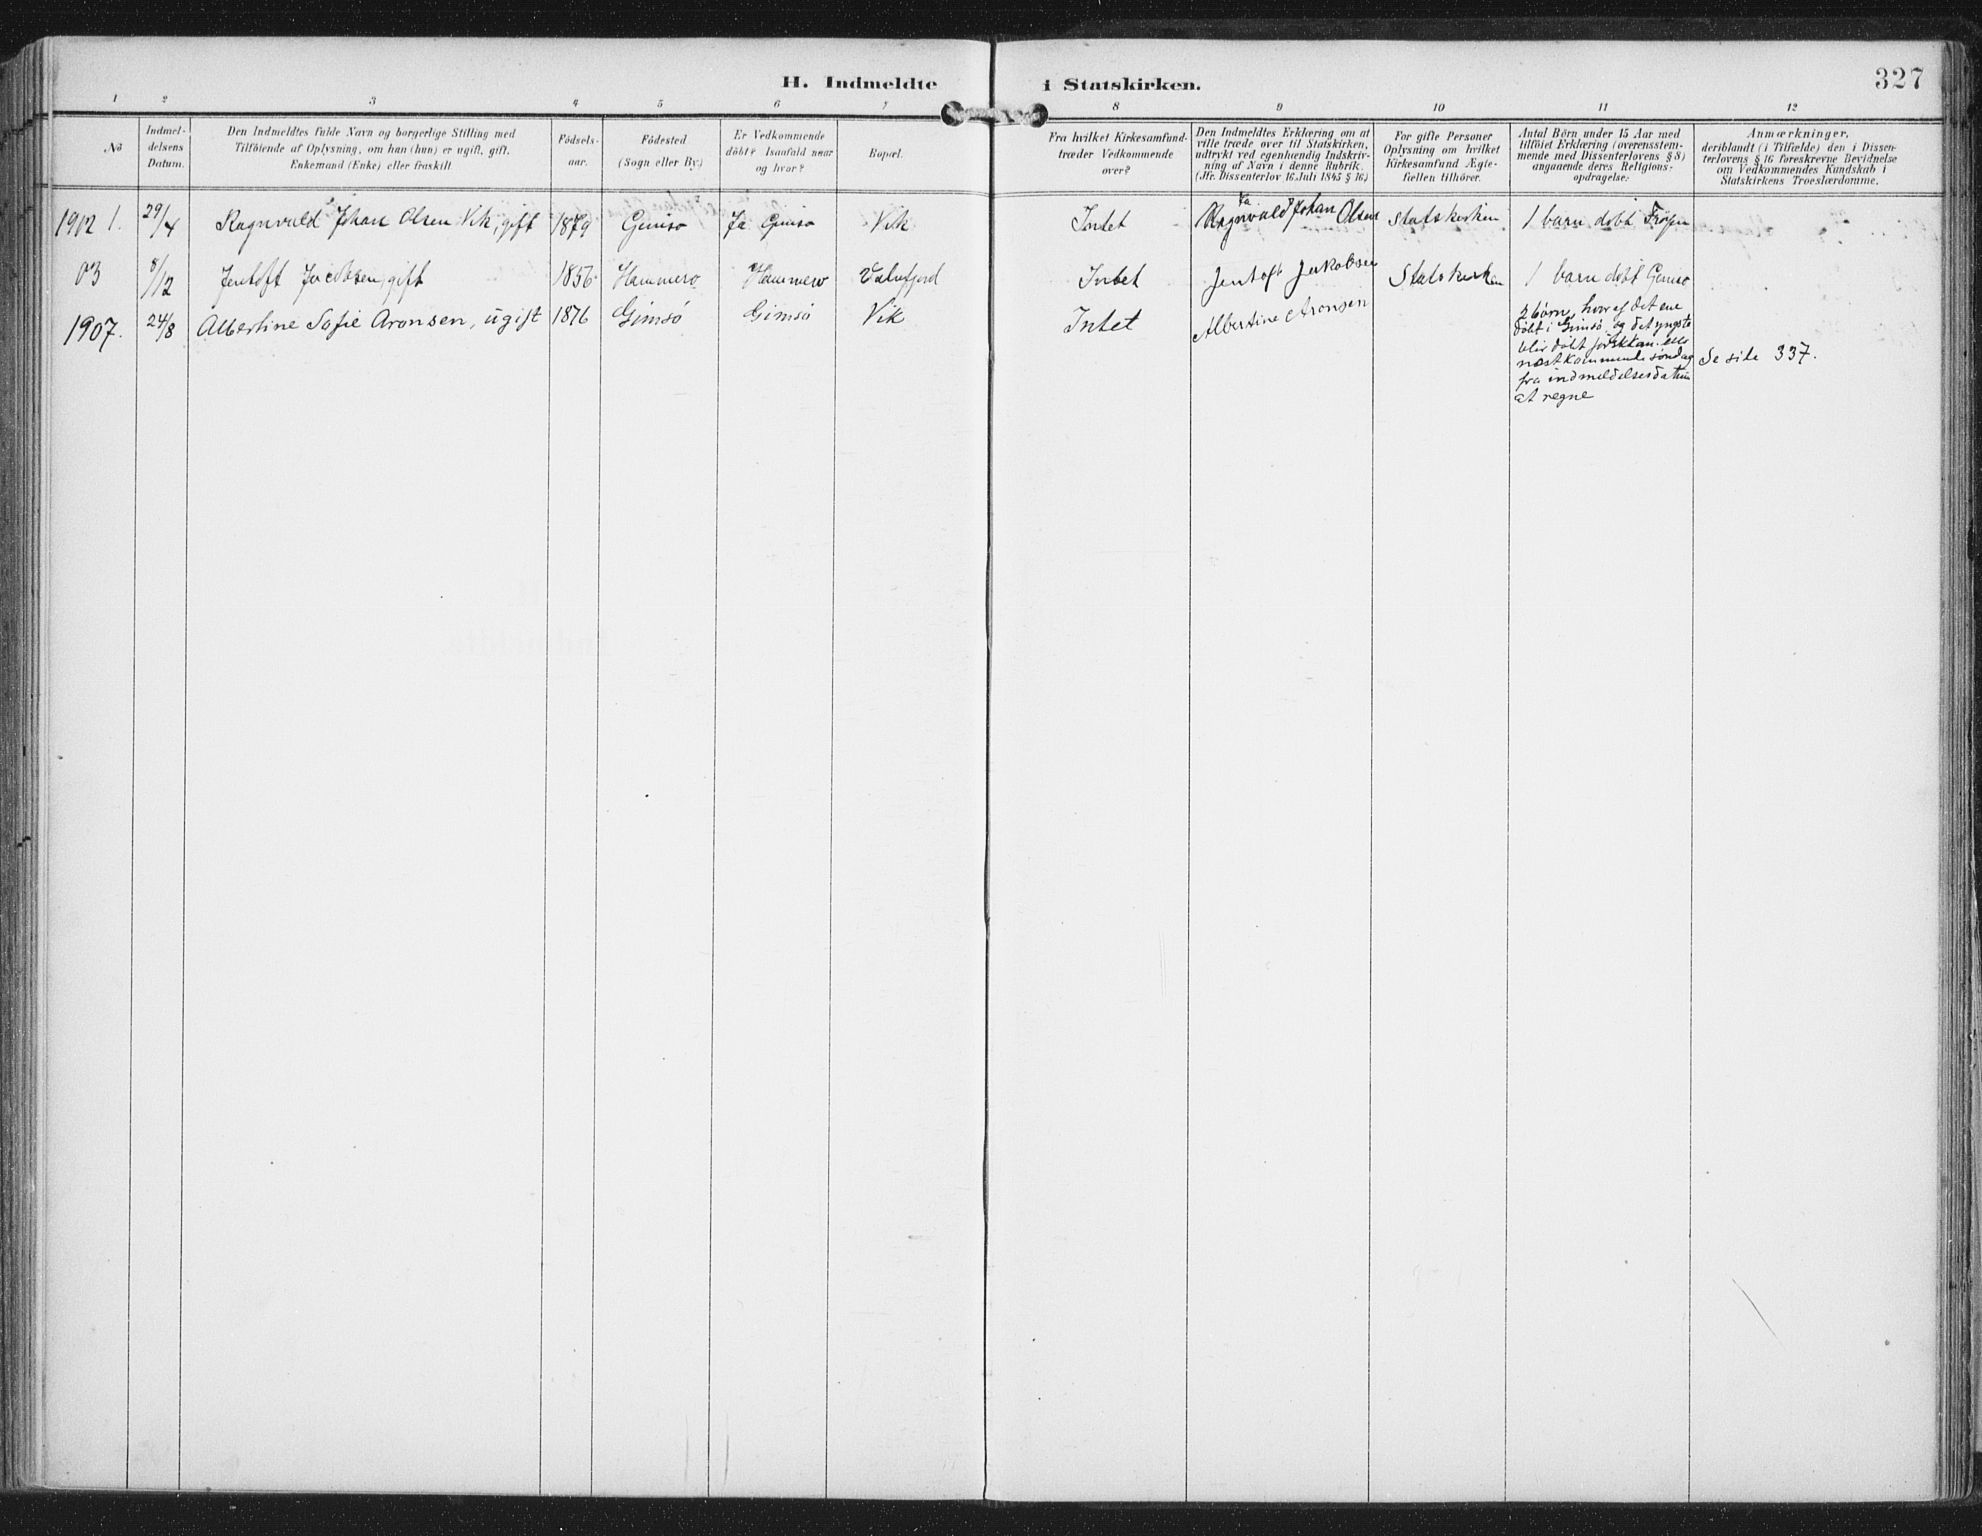 H. Indmeldte i Statskirken. 327
1 2 3 4 5 6 7 8 9 10 11 12
No
Indmel-
delsens
Datum.
Den Indmeldtes fulde Navn og borgerlige Stilling med
Tilföiende af Oplysning, om han (hun) er ugift, gift,
Enkemand (Enke) eller fraskilt
Födsels-
aar.
Födested
(Sogn eller By)
Er Vedkommende
döbt? Isaafald naar
og hvor?
Bopæl.
Fra hvilket Kirkesamfund
træder Vedkommende
over?
Den Indmeldtes Erklæring om at
ville træde over til Statskirken,
udtrykt ved egenhændig Indskriv-
ning af Navn i denne Rubrik.
(Jfr. Dissenterlov 16. Juli 1845 § 16)
For gifte Personer
Oplysning om hvilket
Kirkesamfund Ægte-
fællen tilhörer.
Antal Börn under 15 Aar med
tilföiet Erklæring (overensstem-
mende med Dissenterlovens § 8)
angaaende deres Religions-
opdragelse.
Anmærkninger,
deriblandt (i Tilfælde) den i Dissen-
terlovens § 16 foreskrevne Bevidnelse
om Vedkommendes Kundskab i
Statskirkens Troeslærdomme.
1902 1. 29/4 Ragnvald Johan Olsen Vik, gift 1879 Gimsø Ja Gimsø Vik Intet Ja Ragnvald Johan Olsen Statskirken 1 barn døbt
03 8/12 Jentoft Jacobsen, gift 1856 Hammerø Hammerø Valufjord Intet Jentoft Jakobsen Statskirken 1 barn døbt Gimsø
1907. 24/8 Albertine Sofie Aronsen, ugift 1876 Gimsó Gimsó Vik Intet Albertine Aronsen
2 börn, hvoraf det ene
döbt i Gimsó, og det yngste
blir döbt först kom. eller
næstkommende söndag
fra indmeldelsesdatum
at regne
Se side 337.